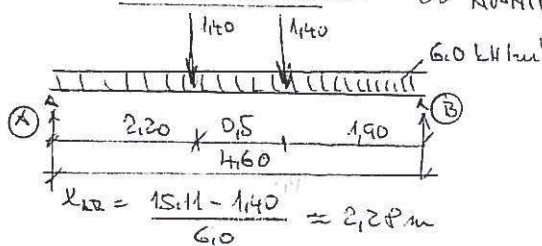 1,40 1,40
6.0 kN/m'
A B
2,20 0,5 1,90
4,60
= 15.11 - 1,40 / 6.0 = 2,28 m